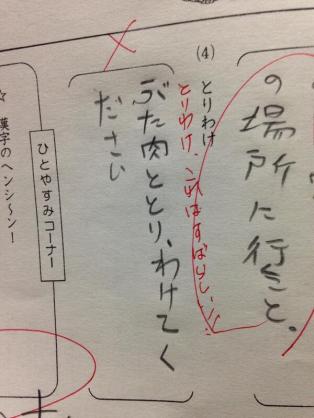 の場所に行くこと。
(4)
とりわけ
とりわけ、これはすばらしい!!
ぶた肉ととり、わけてく
ださい
ひとやすみコーナー
☆ 漢字のヘンシ〜ン!